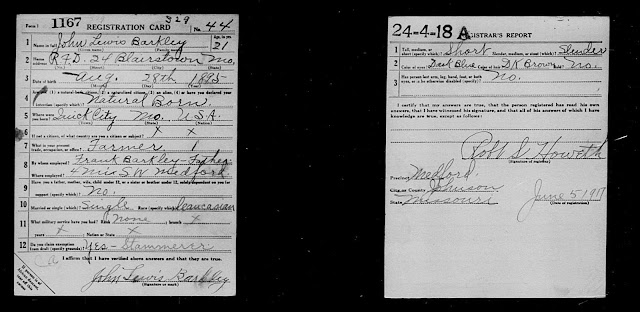 Form 1 1167 329 No. 44
REGISTRATION CARD
1 Name in full John Lewis Barkley Age, in yrs. 21
2 Home address R.F.D. 24 Blairstown Mo.
3 Date of birth Aug. 28th 1895
4 Natural Born
5 Where were you born? Quick City Mo. U.S.A.
6 If not a citizen, of what country are you a citizen or subject? X X
7 What is your present trade, occupation, or office? Farmer 1
8 By whom employed? Frank Barkley - Father
Where employed? 4 mi S.W. Medford
9 Have you a father, mother, wife, child under 12, or a sister or brother under 12, solely dependent on you for support (specify which)? No.
10 Married or single (which)? Single Race (specify which)? Caucasian
11 What military service have you had? Rank None branch X
years X Nation or State X
12 Do you claim exemption from draft (specify grounds)? Yes - Stammerer
I affirm that I have verified above answers and that they are true.
John Lewis Barkley
(Signature or mark)
24-4-18 A
REGISTRAR'S REPORT
1 Tall, medium, or short (specify which)? Short Slender, medium, or stout (which)? Slender
2 Color of eyes? Dark Blue Color of hair? DK Brown Bald? No.
3 Has person lost arm, leg, hand, foot, or both eyes, or is he otherwise disabled (specify)? No.
I certify that my answers are true, that the person registered has read his own answers, that I have witnessed his signature, and that all of his answers of which I have knowledge are true, except as follows:
(Signature of registrar)
Precinct Medford
City or County Johnson
State Missouri
June 5 1917
(Date of registration)